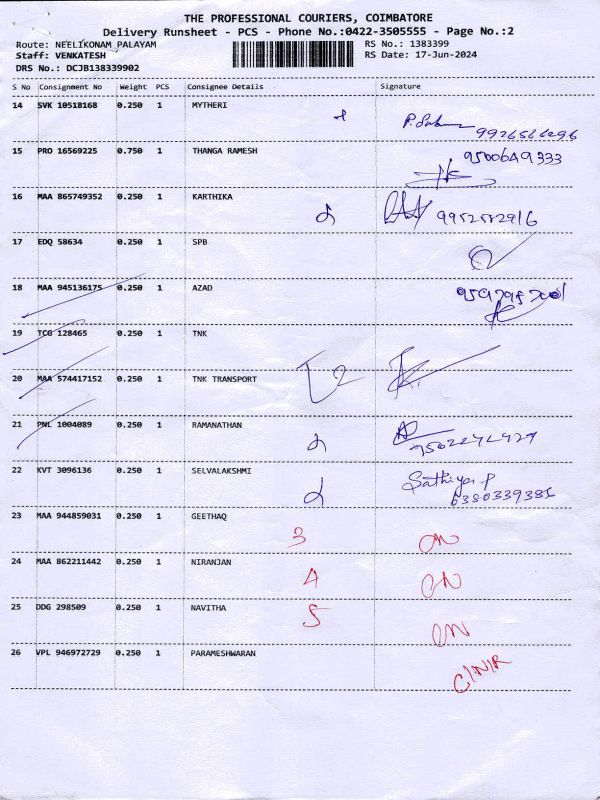 THE PROFESSIONAL COURIERS, COIMBATORE
Delivery Runsheet - PCS - Phone No.:0422-3505555 - Page No.:2
Route: NEELIKONAM PALAYAM RS No.: 1383399
Staff: VENKATESH RS Date: 17-Jun-2024
DRS No.: DCJB138339902
S No Consignment No Weight PCS Consignee Details Signature
14 SVK 10518168 0.250 1 MYTHERI
15 PRO 16569225 0.750 1 THANGA RAMESH 9500649333
16 MAA 865749352 0.250 1 KARTHIKA 9952552916
17 EDQ 58634 0.250 1 SPB
18 MAA 945136175 0.250 1 AZAD
19 TCG 128465 0.250 1 TNK
20 MAA 574417152 0.250 1 TNK TRANSPORT
21 PNL 1004089 0.250 1 RAMANATHAN
22 KVT 3096136 0.250 1 SELVALAKSHMI Sathiya P
6380339385
23 MAA 944859031 0.250 1 GEETHAQ 3 ON
24 MAA 862211442 0.250 1 NIRANJAN 4 ON
25 DDG 298509 0.250 1 NAVITHA 5 ON
26 VPL 946972729 0.250 1 PARAMESHWARAN